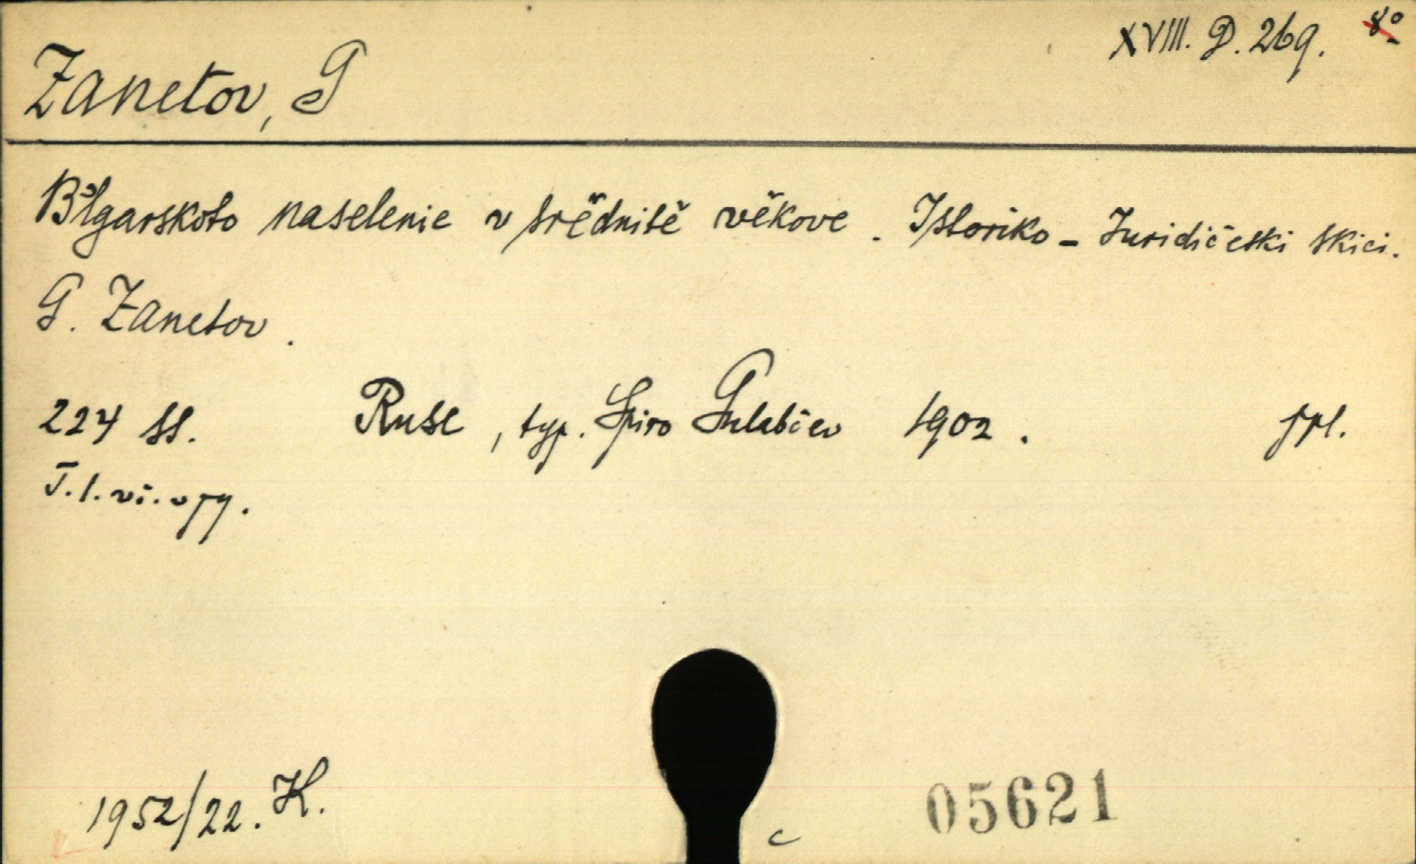 XVIII. D. 269. 8°
Zanetov, G
Bŭlgarskoto naselenie v srědnitě věkove. Istoriko - Juridičeski skici.
G. Zanetov.
224 ss. Ruse, typ. Spiro Gulabčev 1902. fpl.
T. l. vi.
1952/22. K.
05621
c